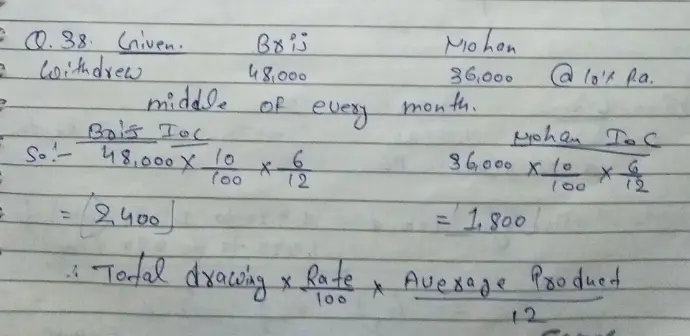 Q. 38. Given. Brij Mohan
Withdrew 48,000 36,000 @ 10% P.a.
middle of every month.
Brij IOC Mohan IOC
So:- 48,000 × 10/100 × 6/12 36,000 × 10/100 × 6/12
= 2,400 = 1,800
∴ Total drawing × Rate/100 × Average Product/12